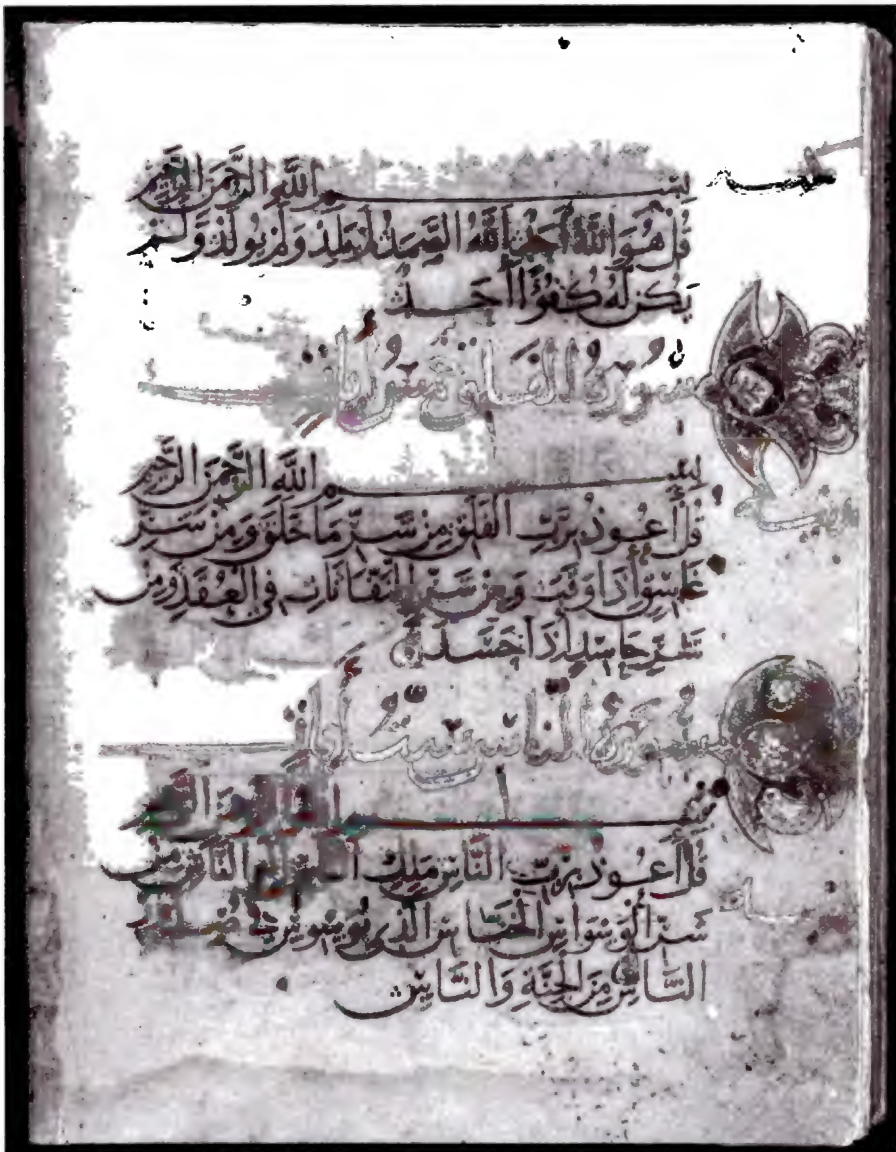 بِسْمِ اللَّهِ الرَّحْمَنِ الرَّحِيمِ
قُلْ هُوَ اللَّهُ أَحَدٌ اللَّهُ الصَّمَدُ لَمْ يَلِدْ وَلَمْ يُولَدْ وَلَمْ
يَكُنْ لَهُ كُفُوًا أَحَدٌ
سُورَةُ الْفَلَقِ خَمْسُ آيَاتٍ
بِسْمِ اللَّهِ الرَّحْمَنِ الرَّحِيمِ
قُلْ أَعُوذُ بِرَبِّ الْفَلَقِ مِنْ شَرِّ مَا خَلَقَ وَمِنْ شَرِّ
غَاسِقٍ إِذَا وَقَبَ وَمِنْ شَرِّ النَّفَّاثَاتِ فِي الْعُقَدِ وَمِنْ
شَرِّ حَاسِدٍ إِذَا حَسَدَ
سُورَةُ النَّاسِ سِتُّ آيَاتٍ
بِسْمِ اللَّهِ الرَّحْمَنِ الرَّحِيمِ
قُلْ أَعُوذُ بِرَبِّ النَّاسِ مَلِكِ النَّاسِ إِلَهِ النَّاسِ مِنْ
شَرِّ الْوَسْوَاسِ الْخَنَّاسِ الَّذِي يُوَسْوِسُ فِي صُدُورِ
النَّاسِ مِنَ الْجِنَّةِ وَالنَّاسِ